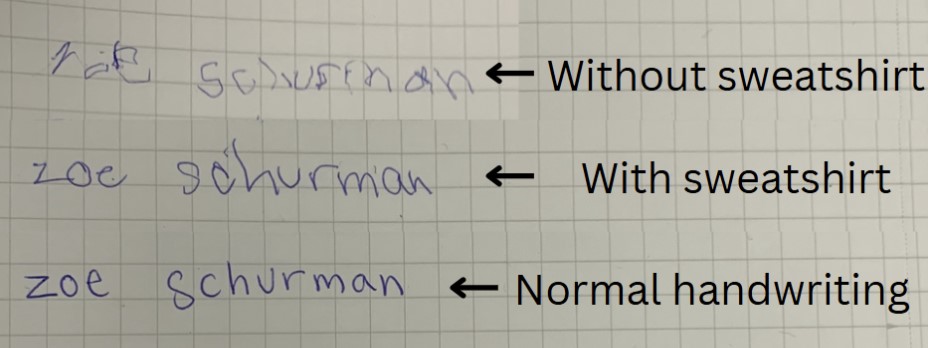 schurman ← Without sweatshirt
zoe schurman ← With sweatshirt
zoe schurman ← Normal handwriting